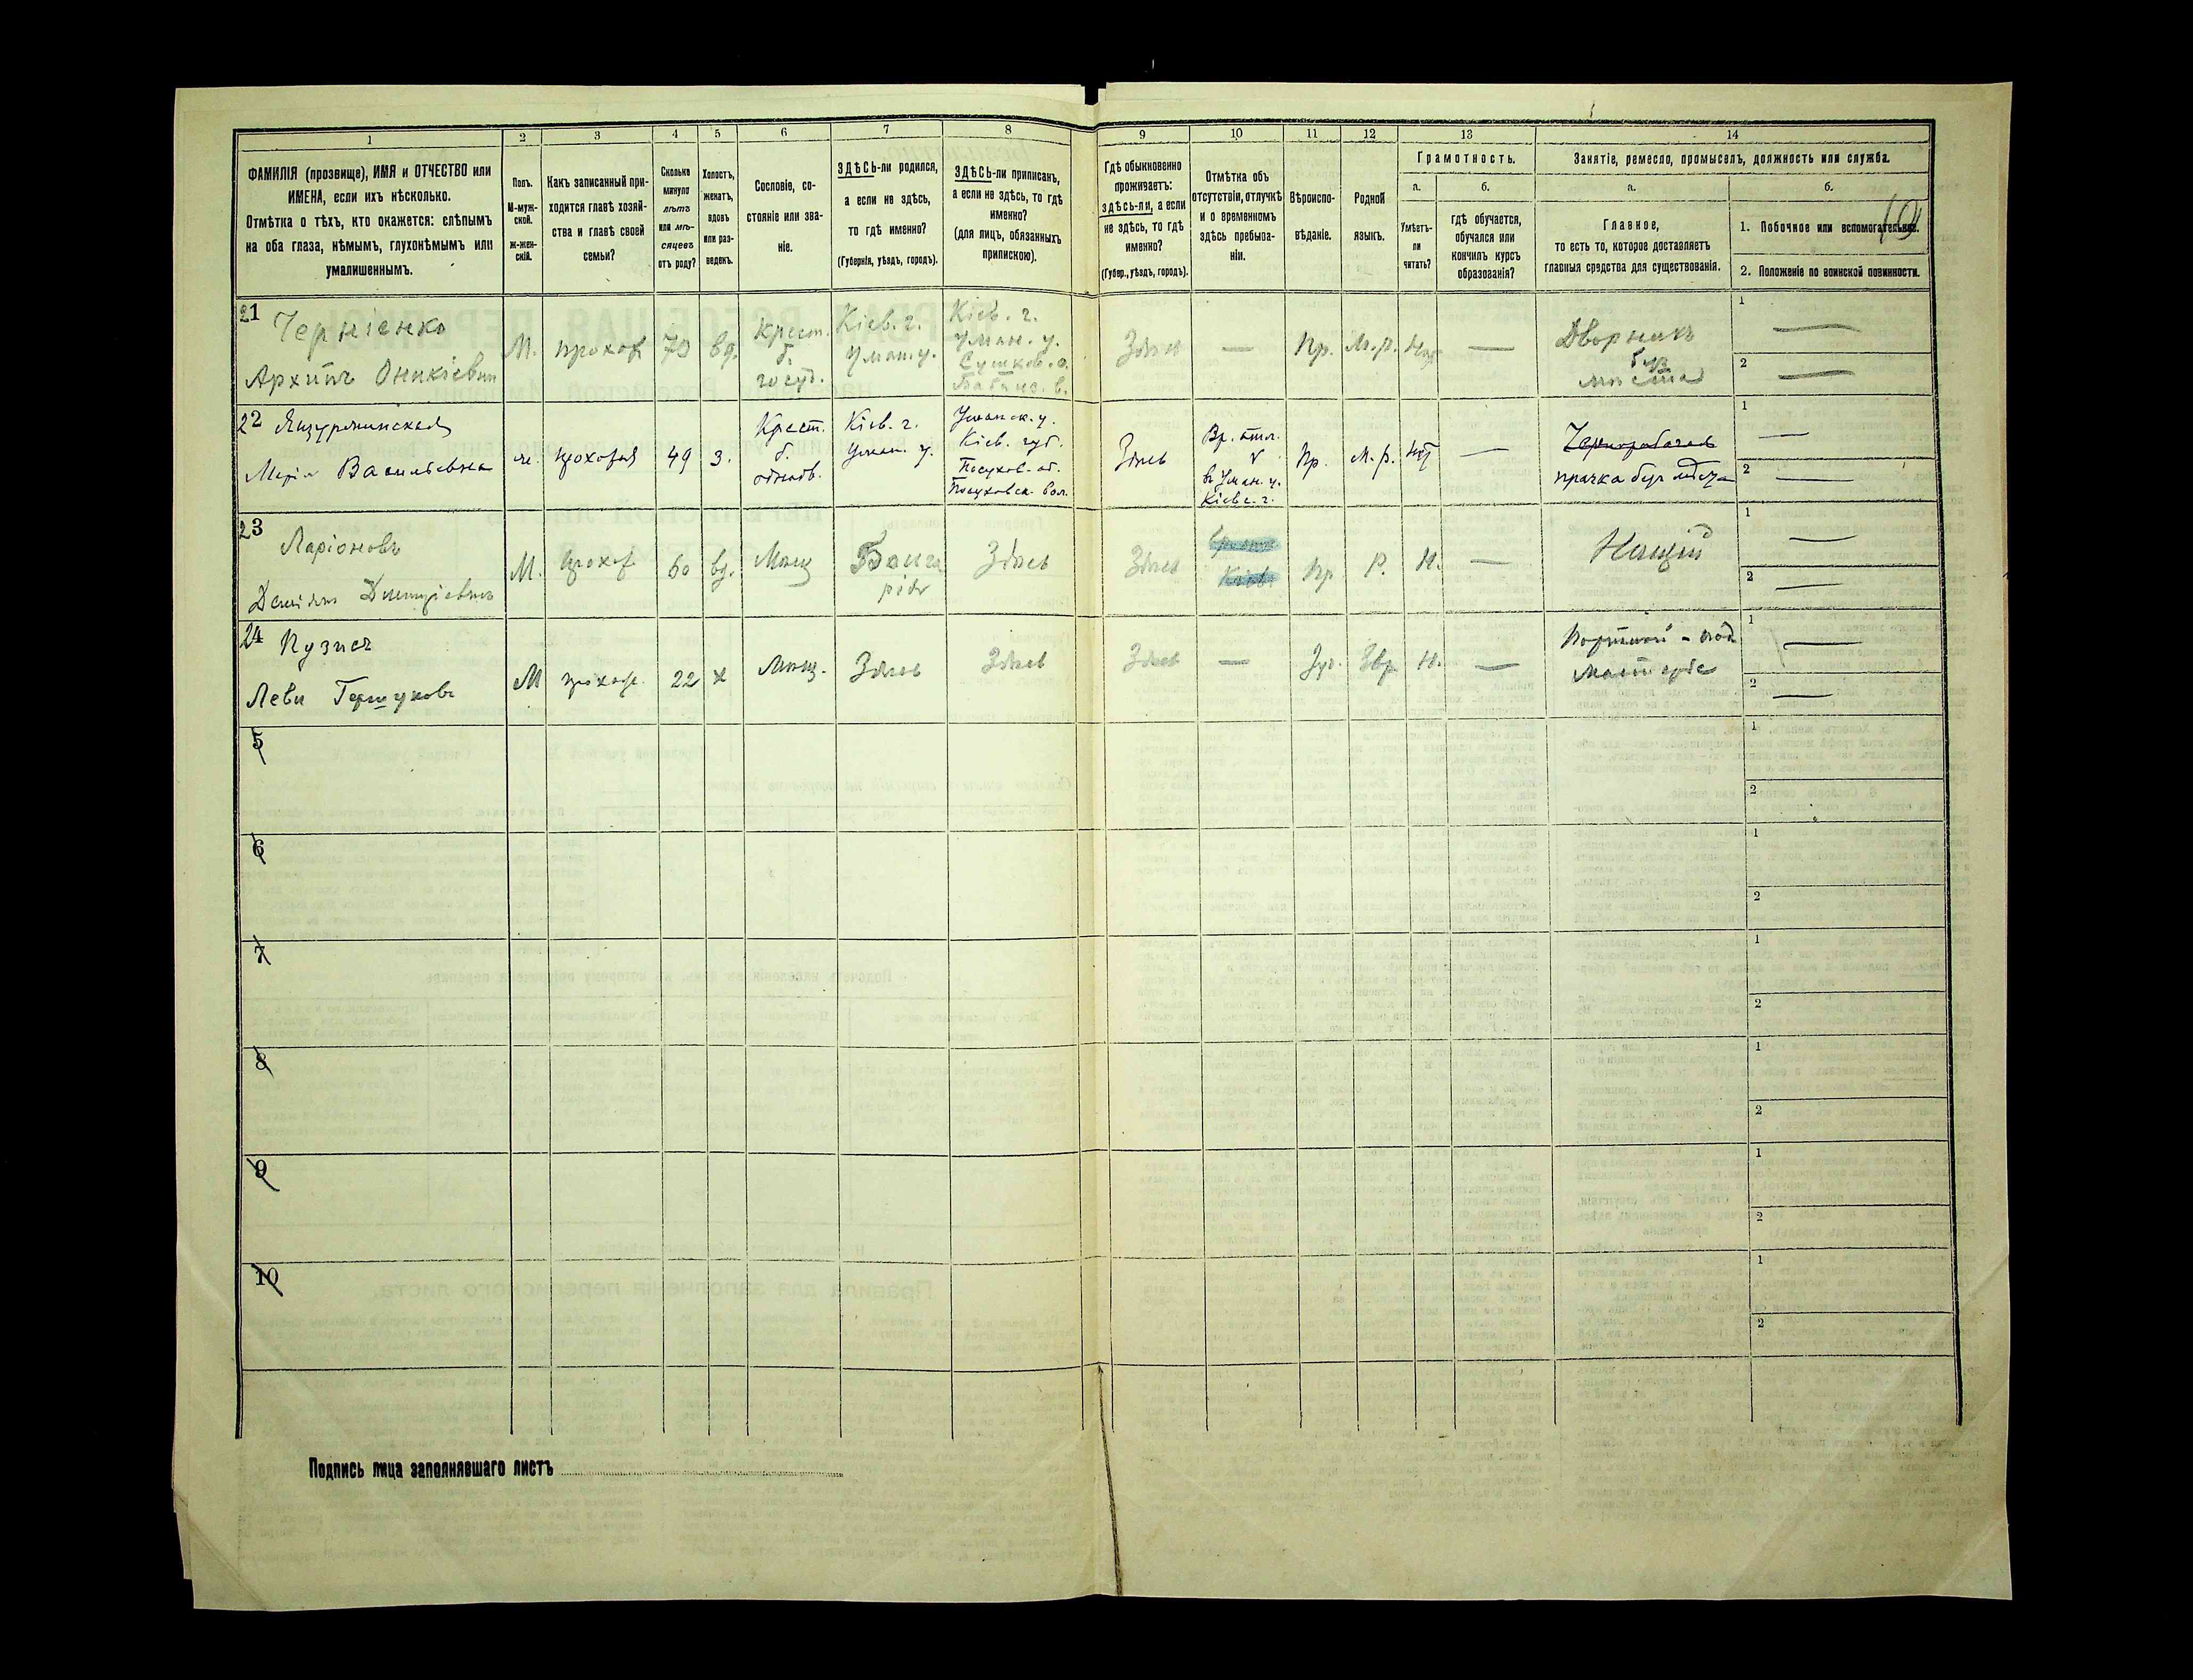 1
2
3
4
5
6
7
8
9
10
11
12
13
14
ФАМИЛІЯ (прозвище), ИМЯ и ОТЧЕСТВО или
ИМЕНА, если ихъ нѣсколько.
Отмѣтка о тѣхъ, кто окажется: слѣпымъ
на оба глаза, нѣмымъ, глухонѣмымъ или
умалишеннымъ.
Полъ.
М-муж-
ской.
Ж-жен-
скій.
Какъ записанный при-
ходится главѣ хозяй-
ства и главѣ своей
семьи?
Сколько
минуло
лѣтъ
или мѣ-
сяцевъ
отъ роду?
Холостъ,
женатъ,
вдовъ
или раз-
веденъ.
Сословіе, со-
стояніе или зва-
ніе.
ЗДѢСЬ-ли родился,
а если не здѣсь,
то гдѣ именно?
(Губернія, уѣздъ, городъ).
ЗДѢСЬ-ли приписанъ,
а если не здѣсь, то гдѣ
именно?
(для лицъ, обязанныхъ
припискою).
Гдѣ обыкновенно
проживаетъ:
здѣсь-ли, а если
не здѣсь, то гдѣ
именно?
(Губер., уѣздъ, городъ).
Отмѣтка объ
отсутствіи, отлучкѣ
и о временномъ
здѣсь пребыва-
ніи.
Вѣроиспо-
вѣданіе.
Родной
языкъ.
Грамотность.
а.
Умѣетъ-
ли
читать?
б.
гдѣ обучается,
обучался или
кончилъ курсъ
образованія?
Занятіе, ремесло, промыселъ, должность или служба.
а.
Главное,
то есть то, которое доставляетъ
главныя средства для существованія.
б.
1. Побочное или вспомогательное.
2. Положеніе по воинской повинности.
21
Черніенко
Архипъ Оникіевич
М.
прохож
70
вд.
Крест.
б.
госуд.
Кіев. г.
Уман. у.
Кіев. г.
Уман. у.
Сушков. о.
Бабанс. в.
Здѣсь
—
Пр.
М.р.
—
Дворникъ
без
мѣста
1
—
2
—
22
Марія Васильевна
прохожая
49
З.
Крест.
б.
Кіев. г.
Уман. у.
Уманск. у.
Кіев. губ.
Здѣсь
Вр. отл.
в Уман. у.
Кіевс. г.
Пр.
М.р.
—
Чернорабочая
прачка без мѣста
1
—
2
—
23
Ларіоновъ
М.
прохож
60
вд.
Мѣщ
Здѣсь
Здѣсь
Пр.
Р.
Н.
—
Нищій
1
—
2
—
24
Лева
М
прохож.
22
х
Мѣщ.
Здѣсь
Здѣсь
Здѣсь
—
Іуд.
Евр.
Н.
—
Портной - под
мастерье
1
—
2
—
5
1
2
6
1
2
7
1
2
8
1
2
9
1
2
10
1
2
Подпись лица заполнявшаго листъ